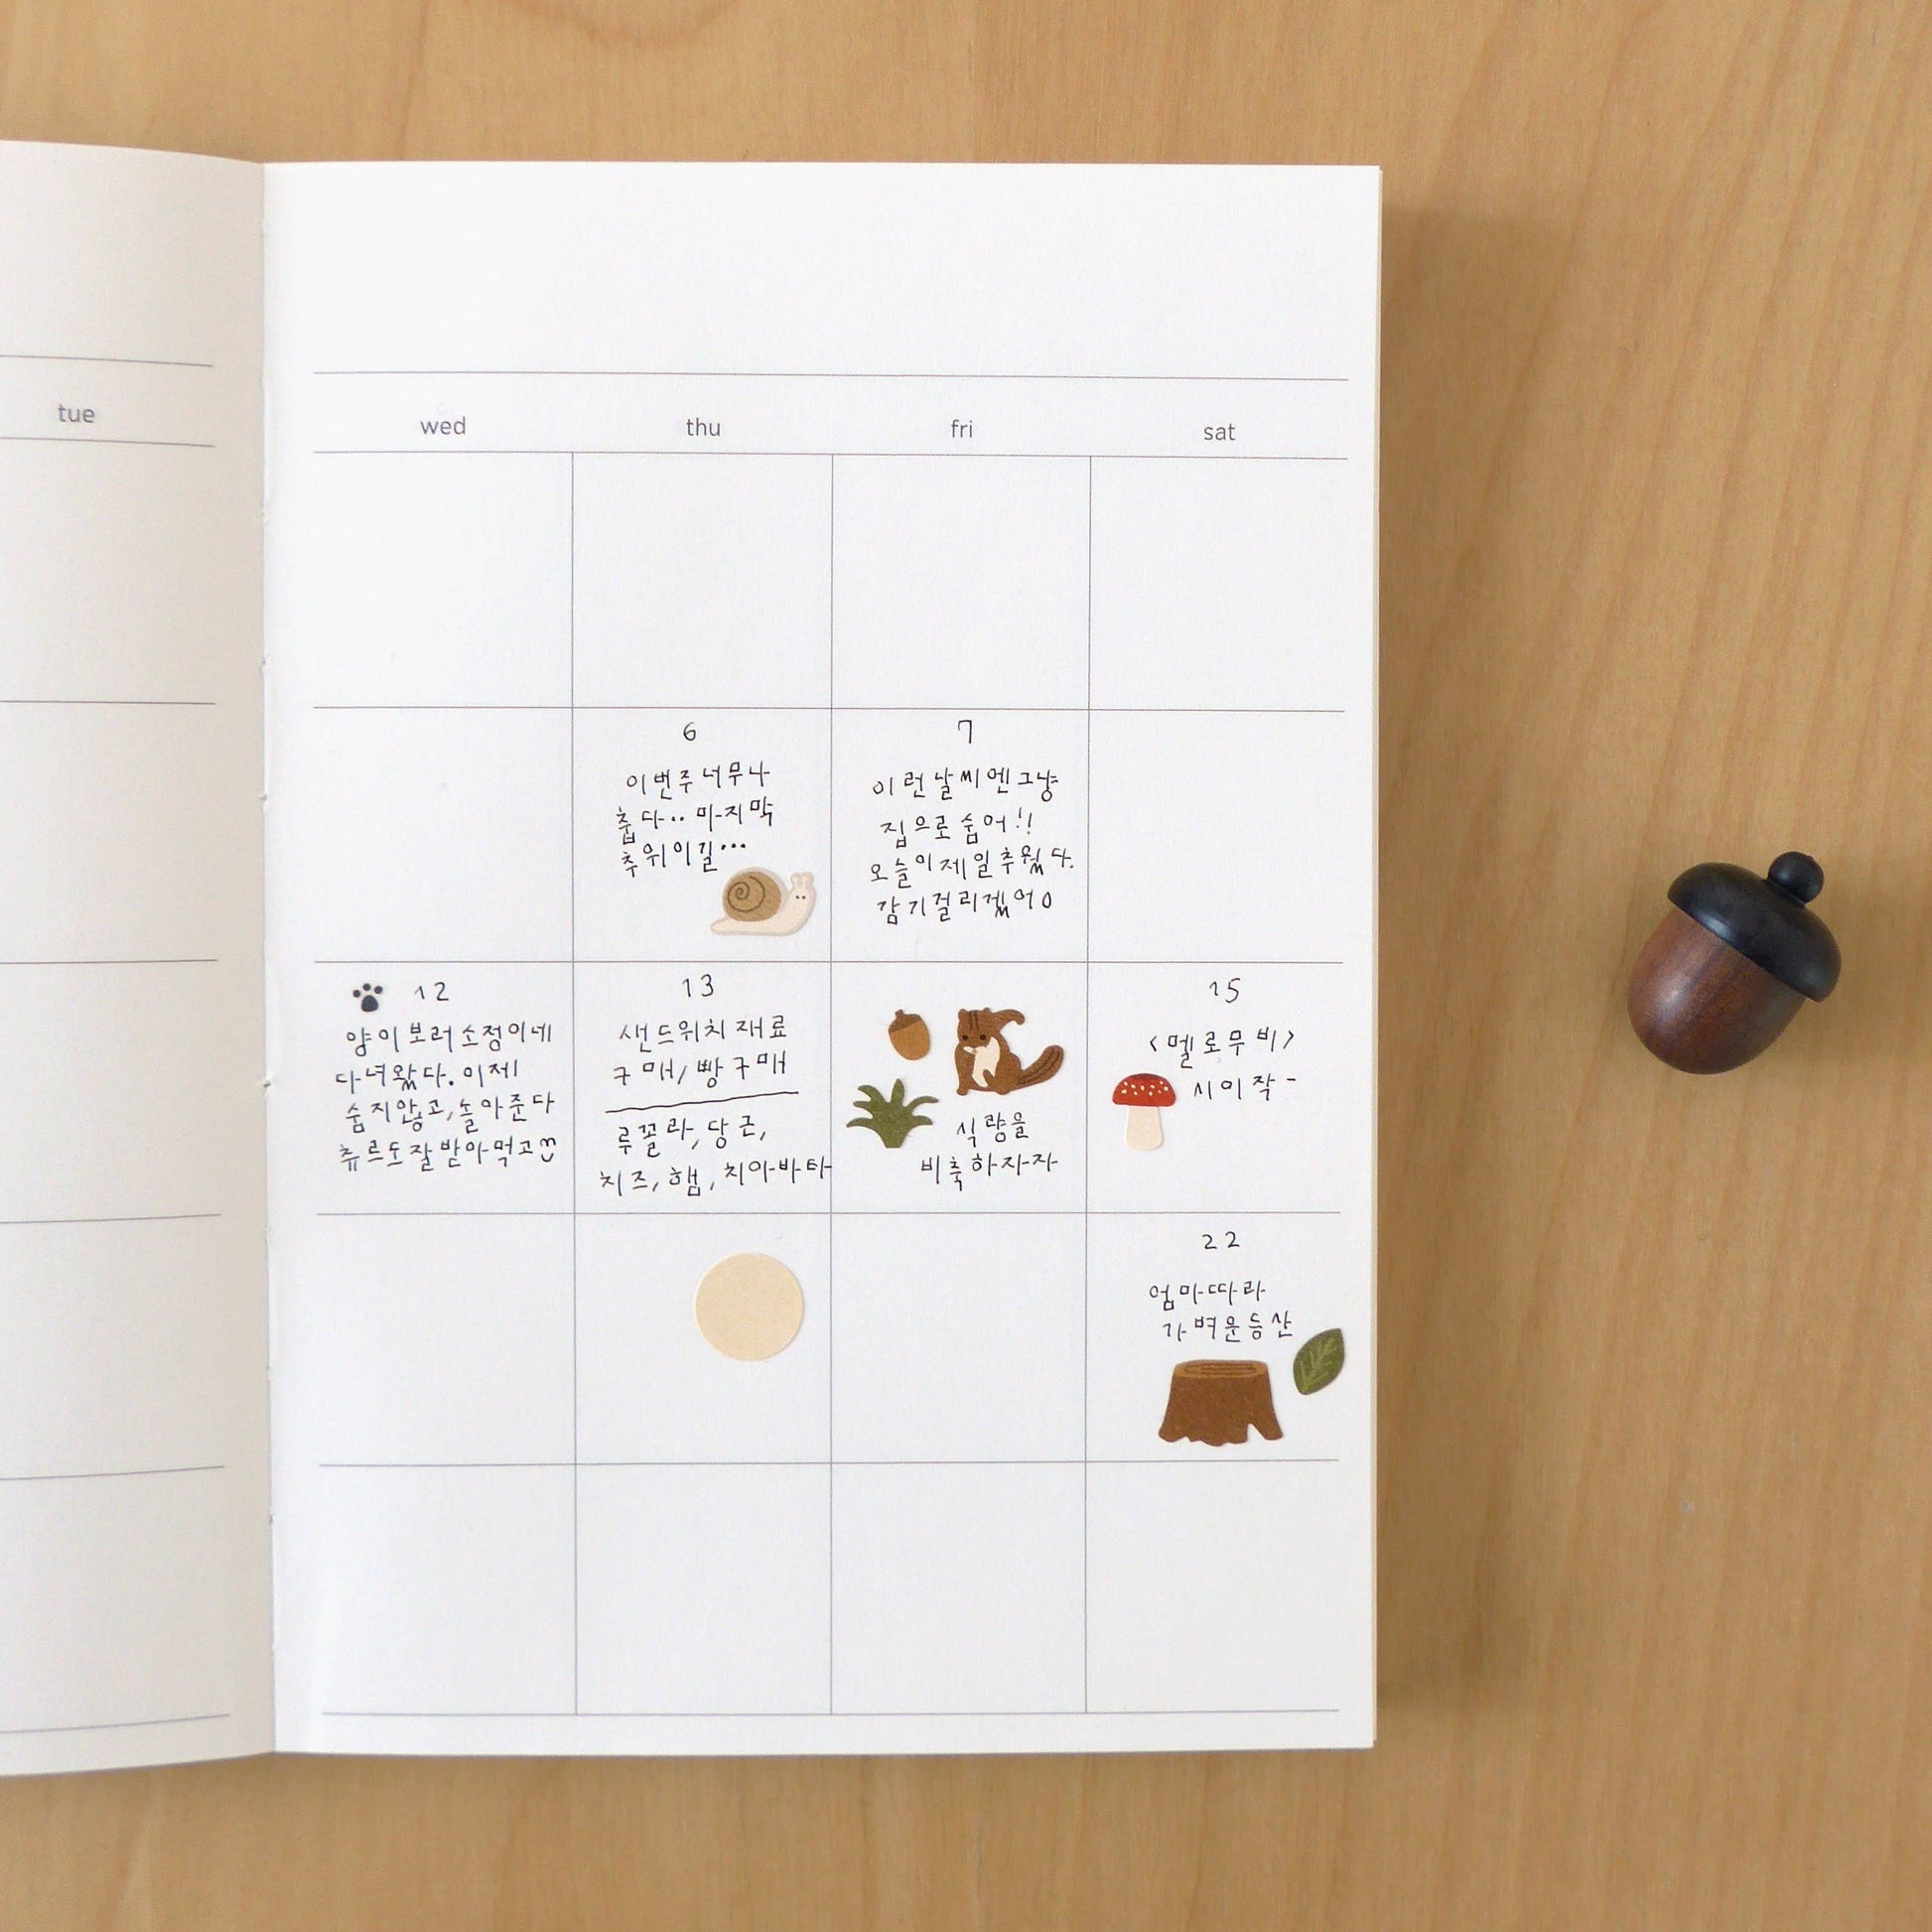 tue
wed
thu
fri
sat
6
이번주 너무나
춥다.. 마지막
추위이길...
7
이런 날씨엔 그냥
집으로 숨어!!
오늘이 제일 추웠다.
감기걸리겠어ㅇ
12
양이 보러 소정이네
다녀왔다. 이제
숨지않고, 놀아준다
츄르도 잘 받아먹고
13
샌드위치 재료
구매/빵구매
루꼴라, 당근,
치즈, 햄, 치아바타
식량을
비축하자자
15
<멜로무비>
시이작-
22
엄마따라
가벼운 등산